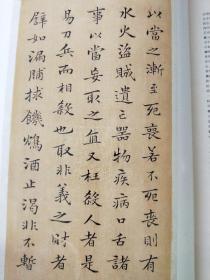 以當之漸至死喪若不死喪則有
水火盜賊遺亡器物疾病口舌諸
事以當妄取之直又枉殺人者是
易刀兵而相殺也取非義之財者
譬如漏脯救饑鴆酒止渴非不暫